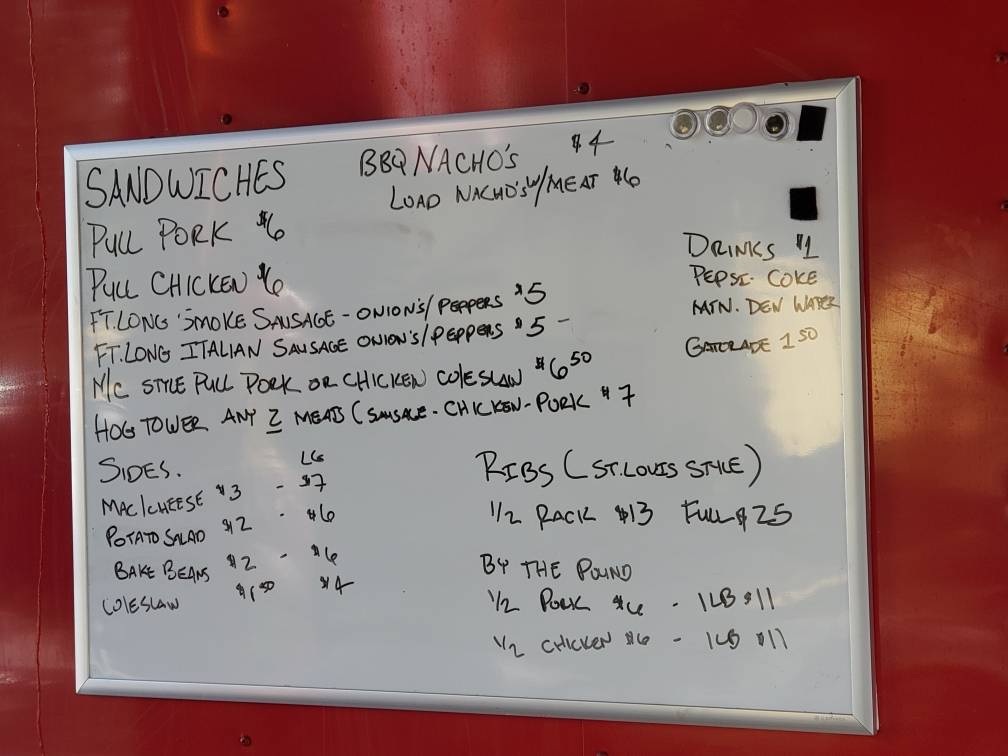 SANDWICHES
BBQ NACHO'S $4
LOAD NACHO'S W/MEAT $6
PULL PORK $6
PULL CHICKEN $6
FT.LONG SMOKE SAUSAGE - ONION'S/PEPPERS $5
FT.LONG ITALIAN SAUSAGE ONION'S/PEPPERS $5 -
N/C STYLE PULL PORK OR CHICKEN COLESLAW $6 50
HOG TOWER ANY 2 MEATS (SAUSAGE - CHICKEN - PORK $7
DRINKS $1
PEPSI - COKE
MTN. DEW WATER
GATORADE 1 50
SIDES. LG
MAC/CHEESE $3 - $7
POTATO SALAD $2 - $6
BAKE BEANS $2 - $6
COLESLAW $1 50 $4
RIBS (ST.LOUIS STYLE)
1/2 RACK $13 FULL $25
BY THE POUND
1/2 PORK $6 - 1LB $11
1/2 CHICKEN $6 - 1LB $11